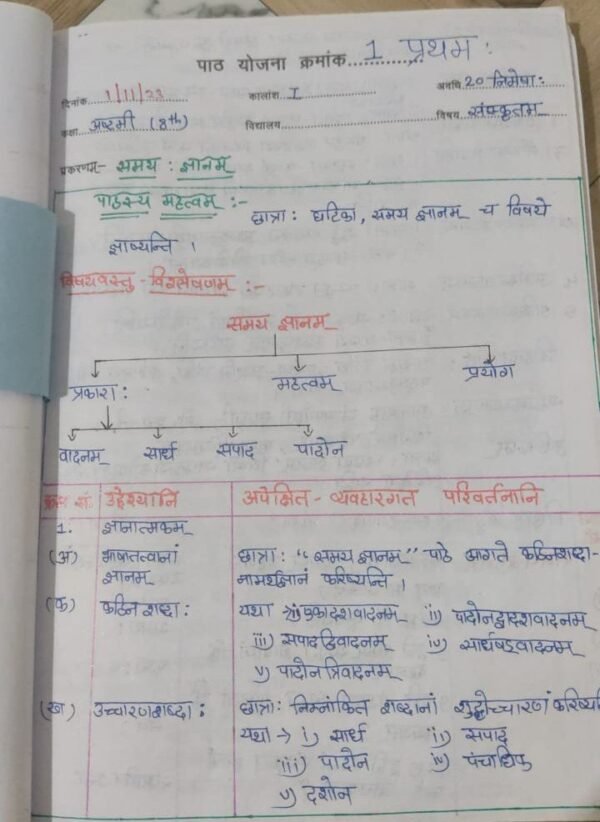 पाठ योजना क्रमांक 1 प्रथम:
दिनांक 1/11/23 कालांश I अवधि 20 निमेषा:
कक्षा अष्टमी (8th) विद्यालय विषय संस्कृतम्
प्रकरणम् - समय : ज्ञानम्
पाठस्य महत्वम् :-
छात्रा: घटिका, समय ज्ञानम् च विषये
ज्ञाष्यन्ति ।
विषयवस्तु - विश्लेषणम् :-
समय ज्ञानम्
प्रकारा: महत्वम् प्रयोग
वादनम् सार्ध सपाद पादोन
क्रम सं. उद्देश्यानि अपेक्षित - व्यवहारगत परिवर्तनानि
1. ज्ञानात्मकम्
(अ) भाषातत्वानां छात्रा: "समय ज्ञानम्" पाठे आगते कठिनशब्दा-
ज्ञानम् नामर्थज्ञानं करिष्यन्ति ।
(क) कठिन शब्दा: यथा → i) एकादशवादनम् ii) पादोनद्वादशवादनम्
iii) सपादद्विवादनम् iv) सार्धषड्वादनम्
v) पादोनत्रिवादनम्
(ख) उच्चारणशब्दा: छात्रा: निम्नांकित शब्दानां शुद्धोच्चारणं करिष्य
यथा → i) सार्ध ii) सपाद
iii) पादोन iv) पंचाधिक
v) दशोन